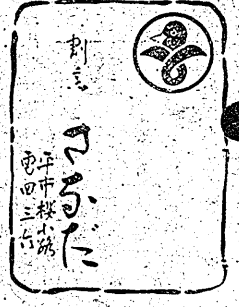 割烹
さらだ
平市桜小路
電四三六